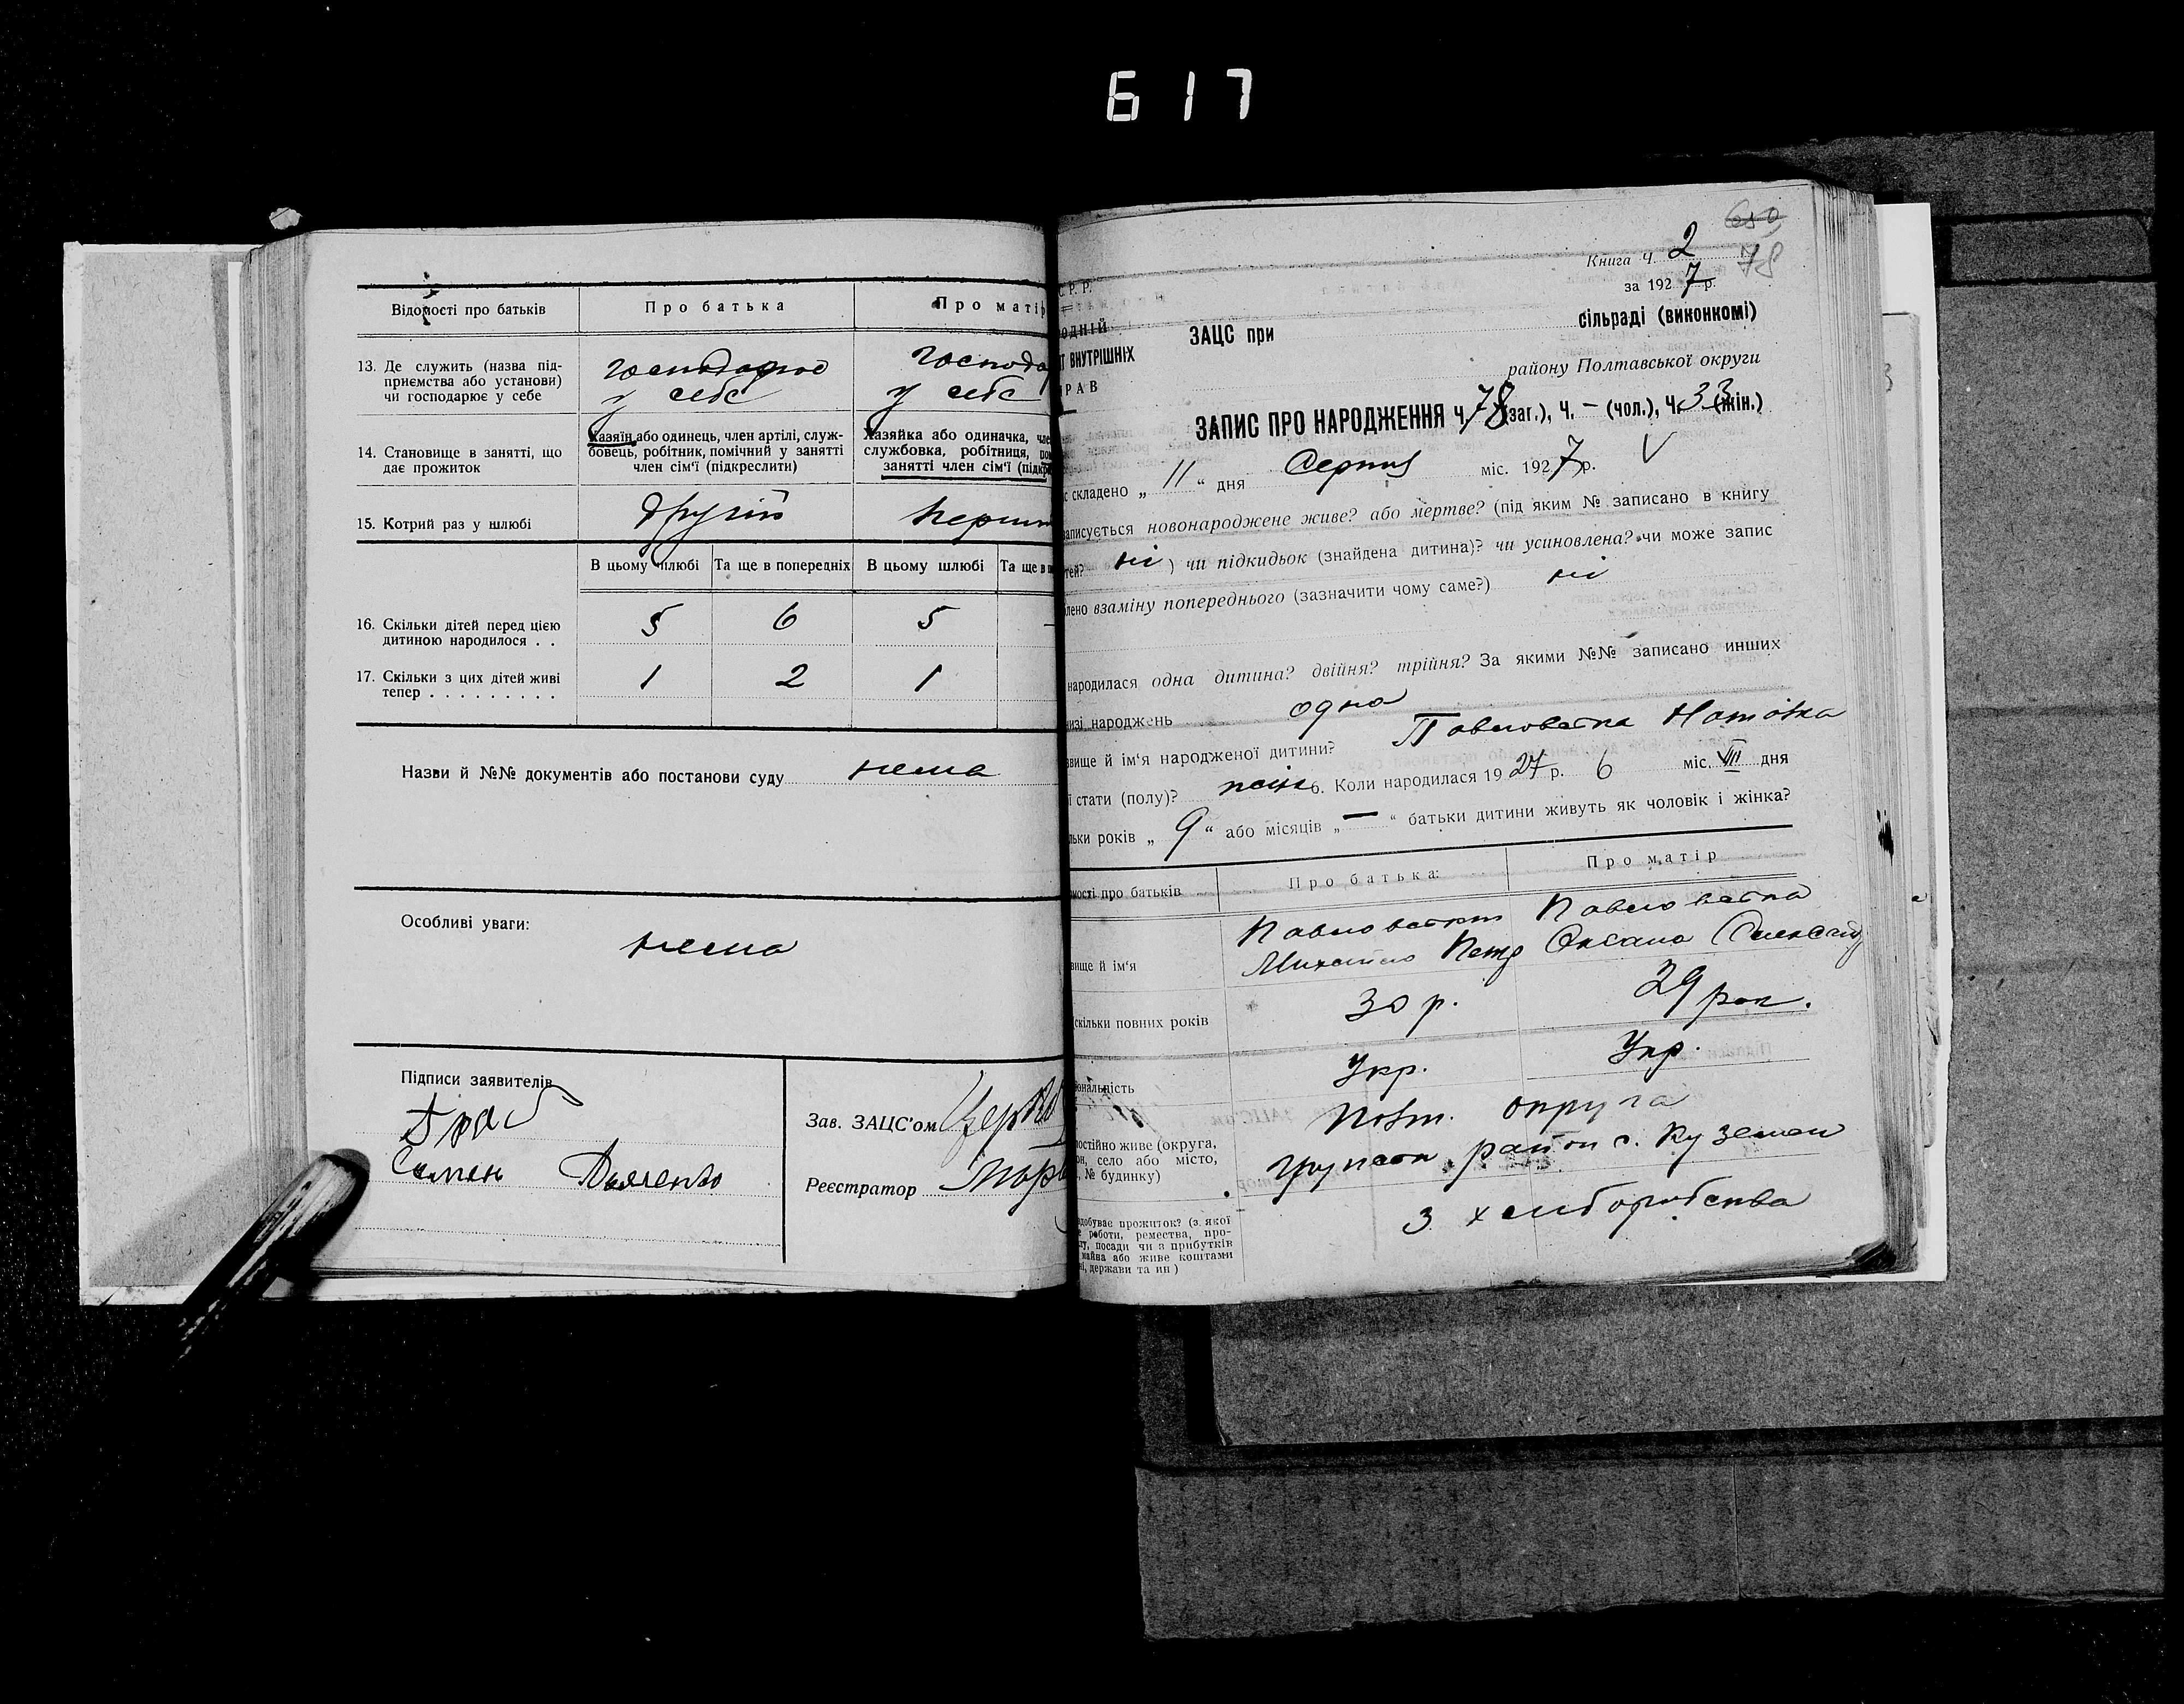 617
Відомості про батьків
Про батька
Про матір
13. Де служить (назва під-
приємства або установи)
чи господарює у себе
господарює
у себе
господа
у себе
14. Становище в занятті, що
дає прожиток
Хазяїн або одинець, член артілі, служ-
бовець, робітник, помічний у занятті
член сім'ї (підкреслити)
Хазяйка або одиначка, чле
службовка, робітниця, по
занятті член сім'ї (підкр
15. Котрий раз у шлюбі
другий
перши
В цьому шлюбі
Та ще в попередніх
В цьому шлюбі
Та ще в п
16. Скільки дітей перед цією
дитиною народилося . .
5
6
5
-
17. Скільки з цих дітей живі
тепер . . . . . . . . .
1
2
1
Назви й №№ документів або постанови суду нема
Особливі уваги:
нема
Підписи заявителів
Семен
Зав. ЗАЦС'ом
Реєстратор
650
78
Книга ч. 2
за 1927 р.
С. Р. Р.
одній
т внутрішніх
рав
ЗАЦС при
сільраді (виконкомі)
району Полтавської округи
ЗАПИС ПРО НАРОДЖЕННЯ ч. 78 (заг.), Ч. – (чол.), Ч. 33 (жін.)
с складено „ 11 “ дня Серпня міс. 1927 р. V
аписується новонароджене живе? або мертве? (під яким № записано в книгу
тей? ні ) чи підкидьок (знайдена дитина)? чи усиновлена? чи може запис
лено взаміну попереднього (зазначити чому саме?) ні
народилася одна дитина? двійня? трійня? За якими №№ записано инших
изі народжень одна
звище й ім'я народженої дитини? Павловська Наталка
ї стати (полу)? жін 6. Коли народилася 1927 р. 6 міс. VIII дня
льки років „ 9 “ або місяців „ — “ батьки дитини живуть як чоловік і жінка?
мості про батьків
Про батька:
Про матір
вище й ім'я
Павловський
Михайло Петр
Павловська
Оксана Олександ
скільки повних років
30 р.
29 рок.
ональність
Укр.
Укр.
постійно живе (округа,
он, село або місто,
, № будинку)
Полт. округа
Грунськ. район с. Куземен
здобуває прожиток? (з якої
е роботи, ремества, про-
лу, посади чи з прибутків
майна або живе коштами
ні, держави та ин)
З хліборобства